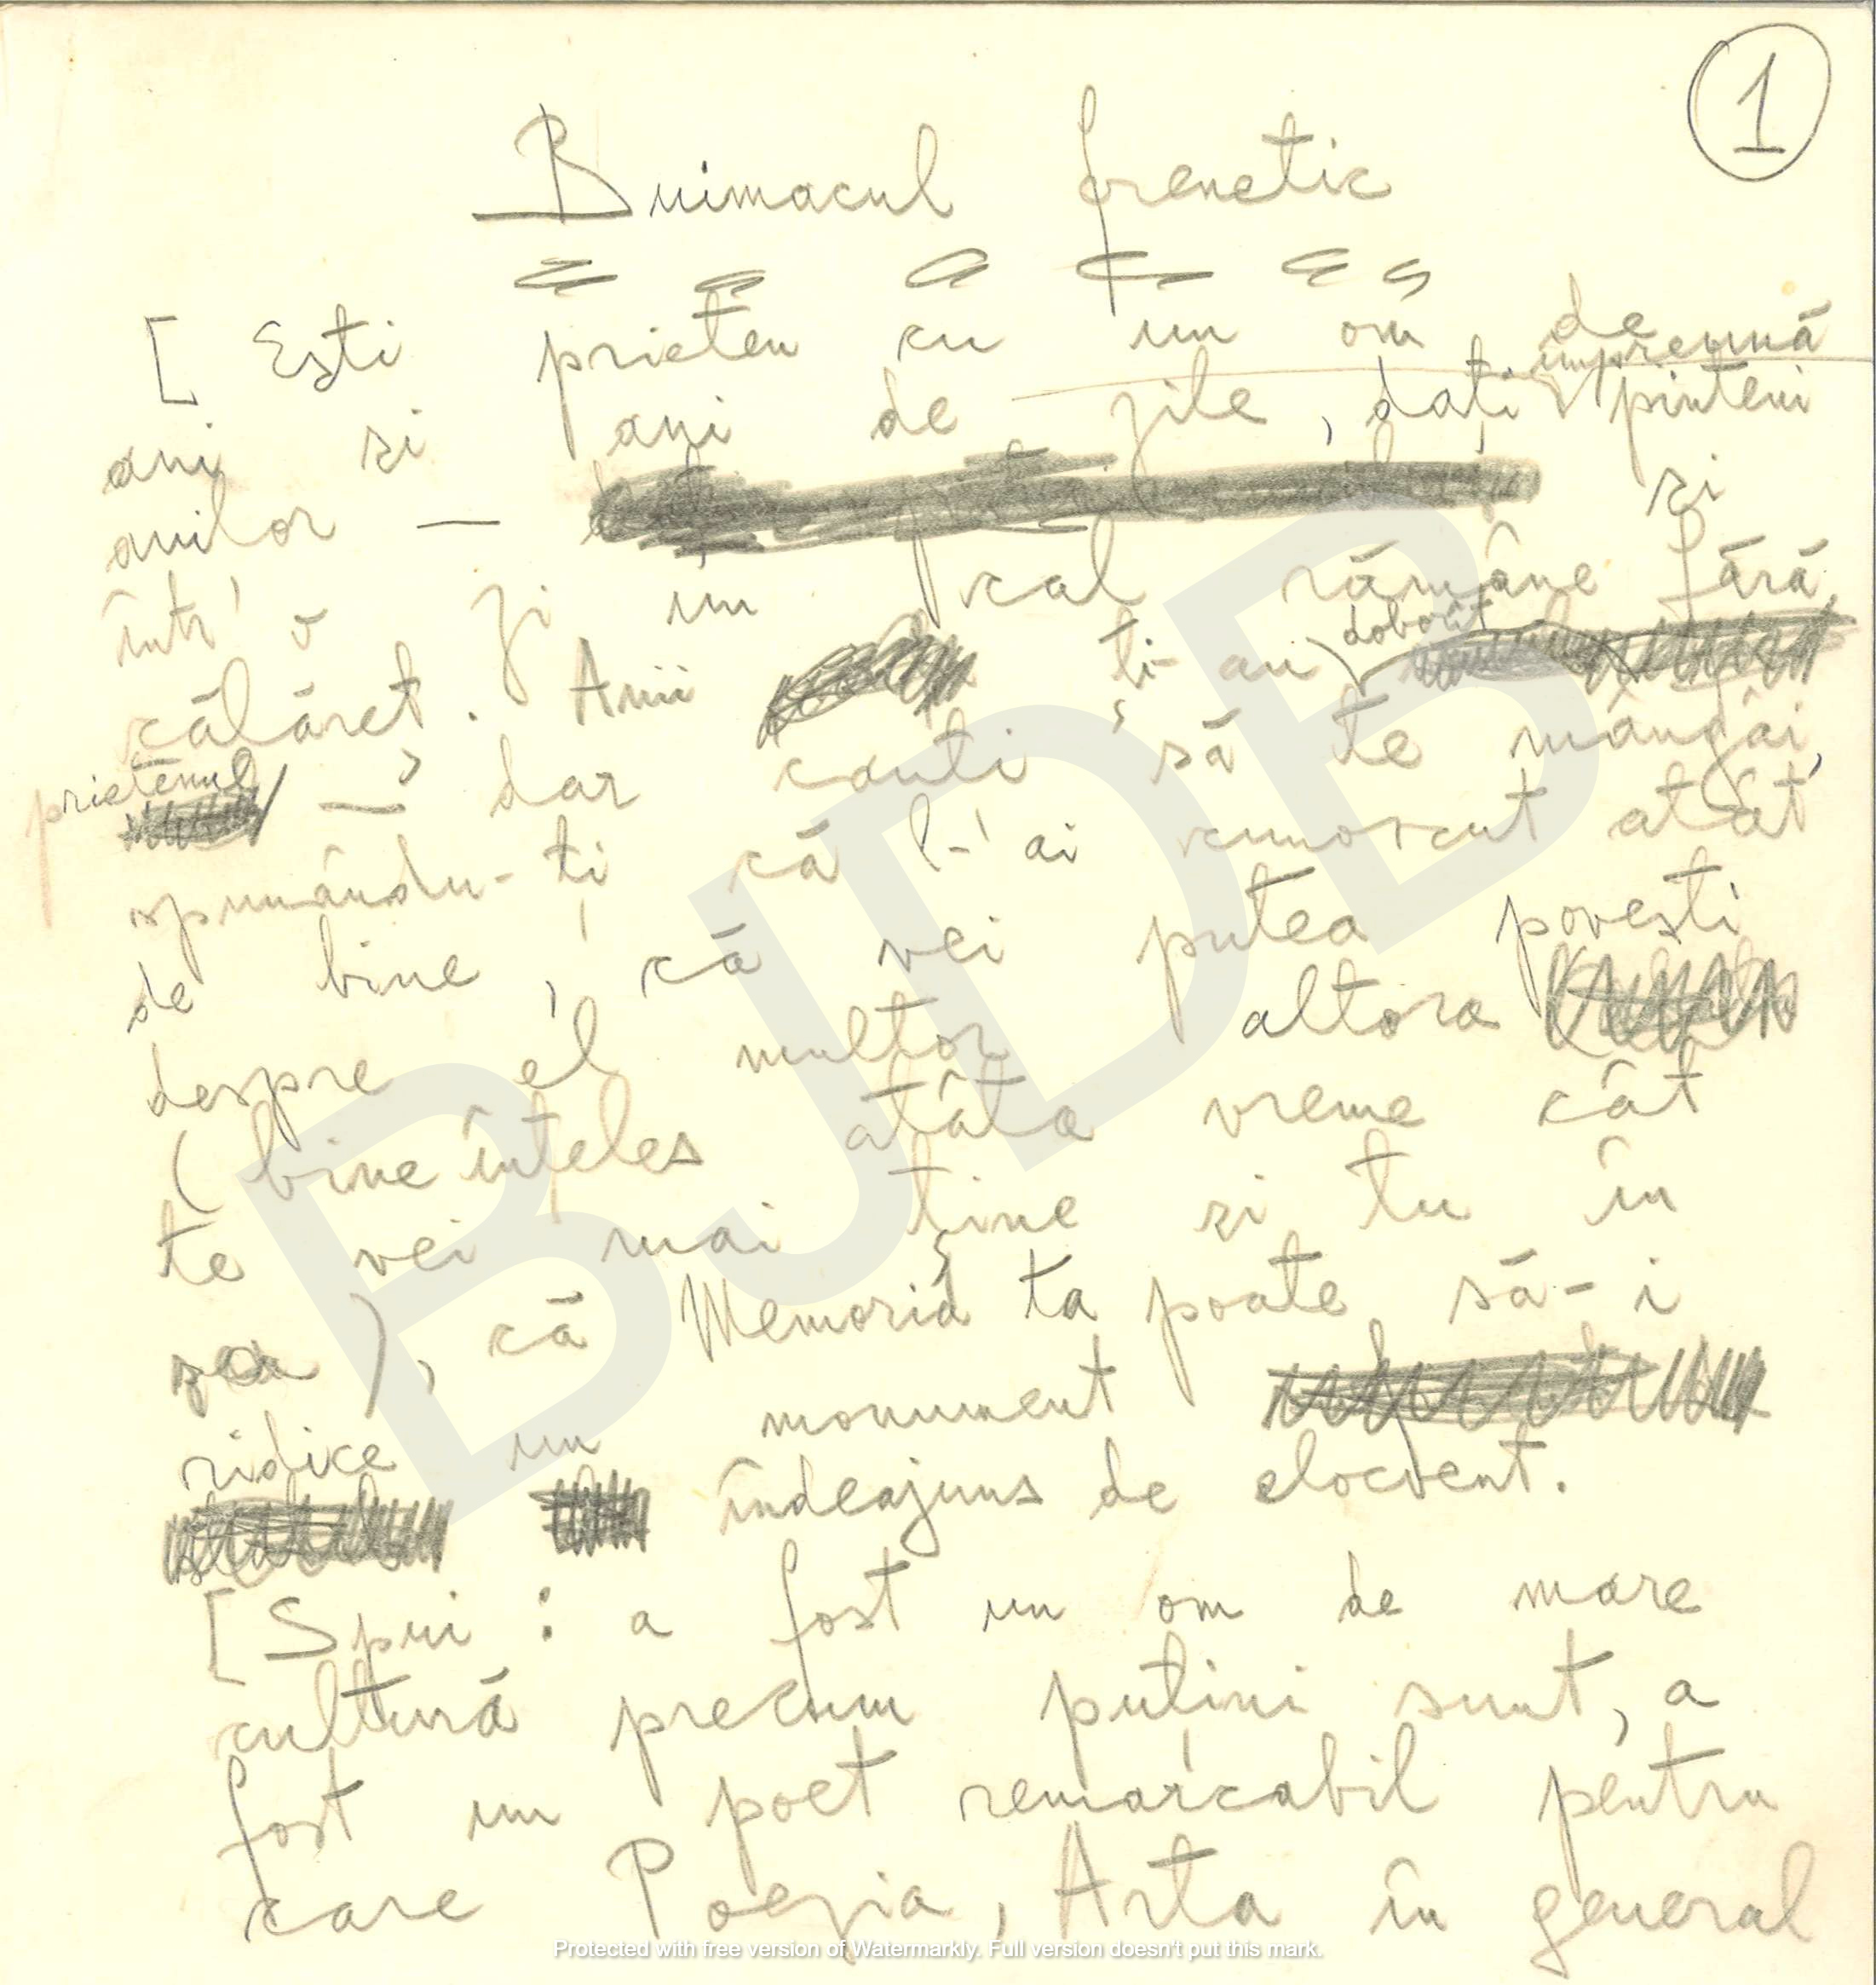 1
Buimacul frenetic
[ Ești prieten cu un om de
ani și ani de zile, dați împreună pinteni
anilor — și
într'o zi un cal rămâne fără
călăreț. Anii ți-au doborît
prietenul — dar cauți să te mângâi,
spunându-ți că l-ai cunoscut atât
de bine, că vei putea povesti
despre el multor altora
(bine înțeles atâta vreme cât
te vei mai ține și tu în
șea), că Memoria ta poate să-i
ridice un monument
îndeajuns de elocvent.
[ Spui : a fost un om de mare
cultură precum puțini sunt, a
fost un poet remarcabil pentru
care Poezia, Arta în general
BJDB
Protected with free version of Watermarkly. Full version doesn't put this mark.